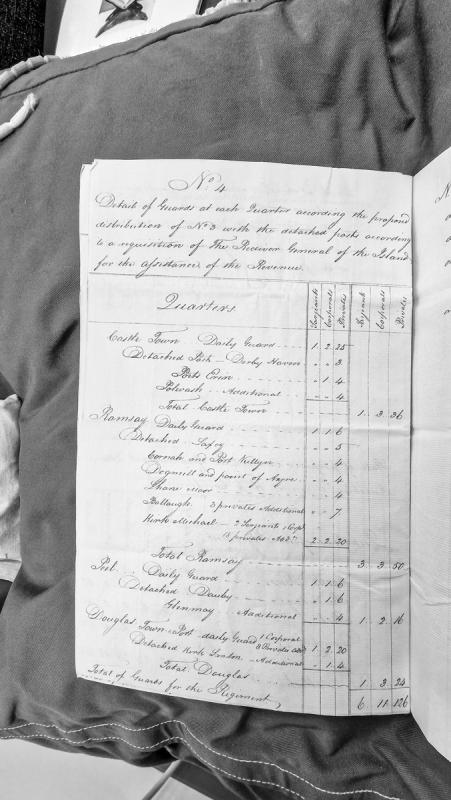 No. 4
Detail of Guards at each Quarter according the propos'd
distribution of No 3 with the detached posts according
to a requisition of the Receiver General of the Island
for the Assistance of the Revenue.
Quarters Serjeants Corporals Privates Serjeants Corporals Privates
Castle Town Daily Guard 1 2 25
Detached Post Derby Haven " " 3
Port Erin " 1 4
Additional " " 4
Total Castle Town 1 3 36
Ramsay Daily Guard 1 1 6
Detached Laxey " " 5
Cornah and Port " " 4
Dogmill and point of Ayre " " 4
" " 4
Ballaugh 3 privates Additional " " 7
Kirk Michael 2 Serjeants 1 Corp
13 privates Add.l 2 2 20
Total Ramsay 3 3 50
Peel Daily Guard 1 1 6
Detached Dawby " 1 6
Glenmoy Additional " " 4 1 2 16
Douglas Town Port daily Guard 1 Corporal
8 Privates Add 1 2 20
Detached Kirk Additional " 1 4
Total Douglas 1 3 24
Total of Guards for the Regiment, 6 11 126